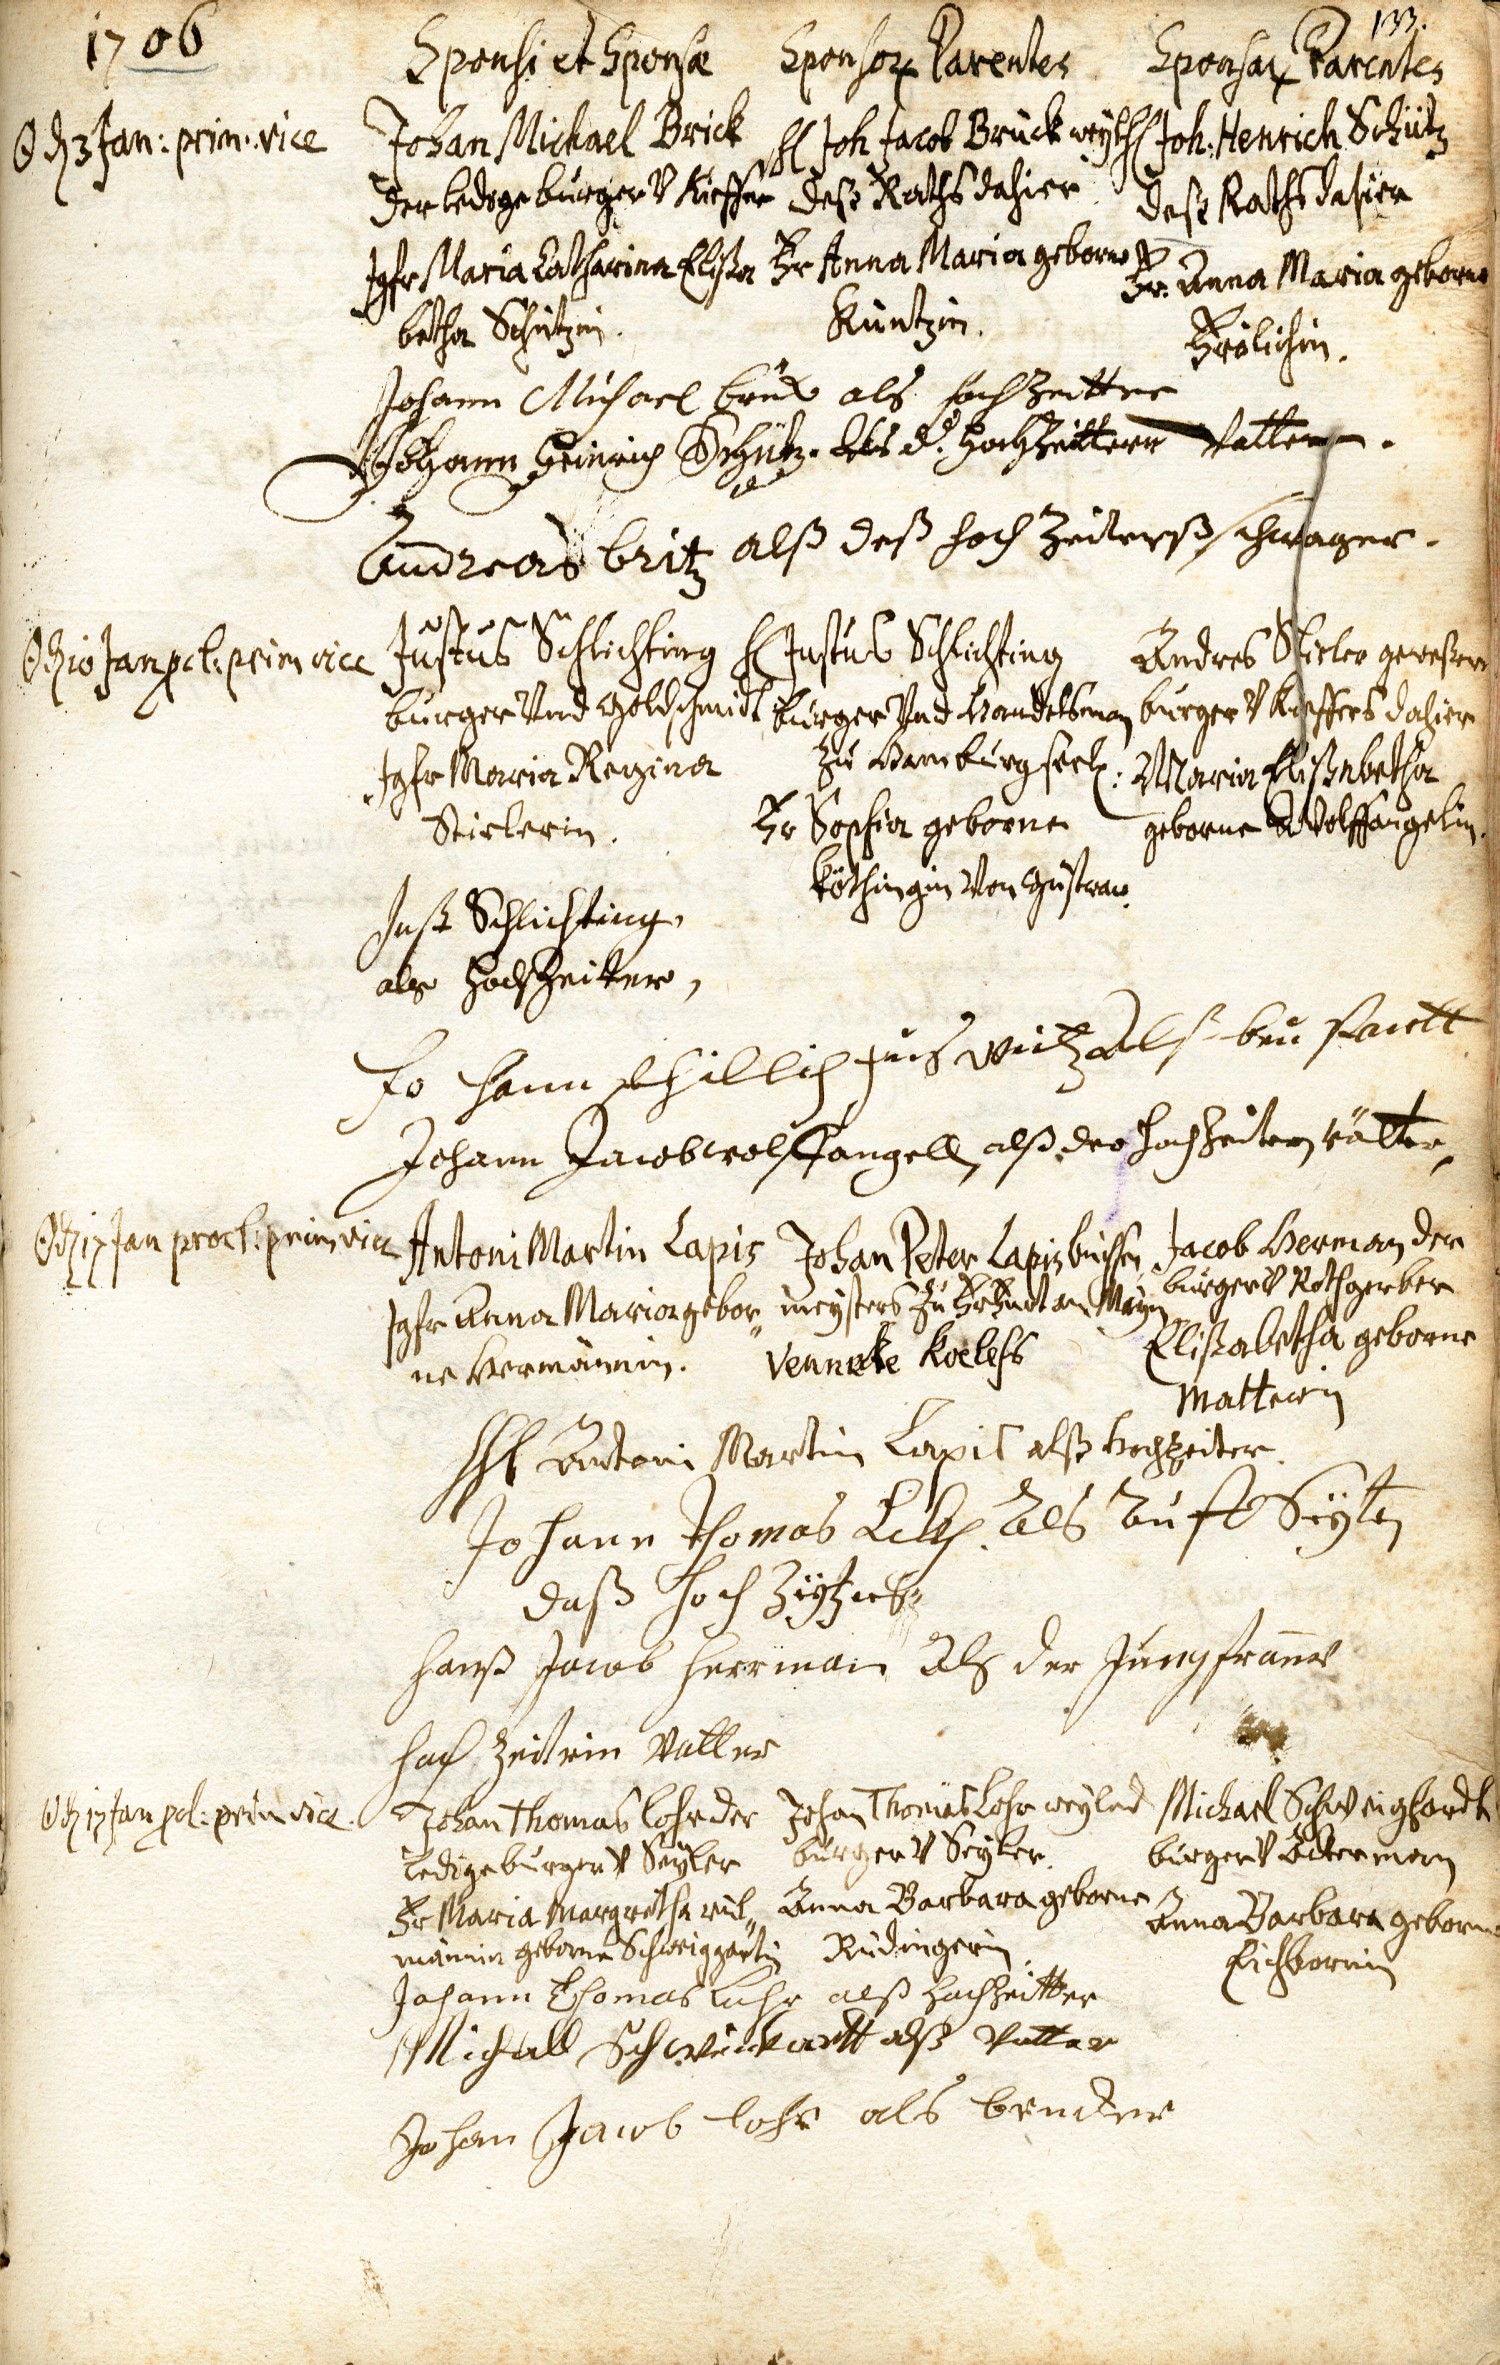 1706
133.
Sponsi et Sponsæ
Sponsor Parentes
Sponsar Parentes
3 Jan: prim: vice
Johan Michael Brick
der ledige burger V Kieffer
Jgfr Maria Catharina Elisa
betha Schützin.
H Joh Jacob Bruck weyl
deß Raths dahier
Fr Anna Maria geborne
Kuntzin.
H Joh: Henrich Schütz
deß Raths dahier
Fr. Anna Maria geborne
Frölichin.
Johann Michael brück als hochzeitter
Johann Heinrich Schütz. Als d. Hochzeittern Vatter.
Andreas britz alß deß hoch Zeiterß schwager.
10 Jan pcl: prim vice
Justus Schlichting
burger Und Goldschmidt
Jgfr Maria Regina
Stirlerin.
H Justus Schlichting
burger Und Handelsman
zu Hamburg seel:
Fr Sophia geborne
Köthingin Von Gustrau.
Andres Stirler geweßen
burger V Kieffers dahier
Maria Elisabetha
geborne Wolffangelin.
Just Schlichting,
als Hochzeiter,
Johann als beystandt
Johann Jacob wolffangell, alß der Hochzeitern vätter,
17 Jan procl: prim vice
Antoni Martin Lapis
Jgfr Anna Maria gebor„
ne Hermännin.
Johan Peter Lapis büchsen
meysters zu am Mayn
Venneke Koelehs
Jacob Herman der
burger V Rothgerber
Elisabetha geborne
Mattern
Antoni Martin Lapis alß Hochzeiter.
Johann Thomas Als Auff Seyten
daß hoch Zeytzers
hanß Jacob herrman Als der Jungfrauw
hoch Zeitrin Vatter
17 Jan pcl: prim vice.
Johan Thomas Lohr der
ledige burger V Seyler
Fr Maria Margretha
männin geborne Schweiggartin
Johan Thomas Lohr weyland
burger V Seyler.
Anna Barbara geborne
Rüdingerin.
Michael Schweighardt
burger V Ackerman
Anna Barbara geborne
Eichhornin
Johann Thomas Luhr alß hochzeitter
Michall Schweickartt alß Vatter
Johan Jacob lohr als bruder